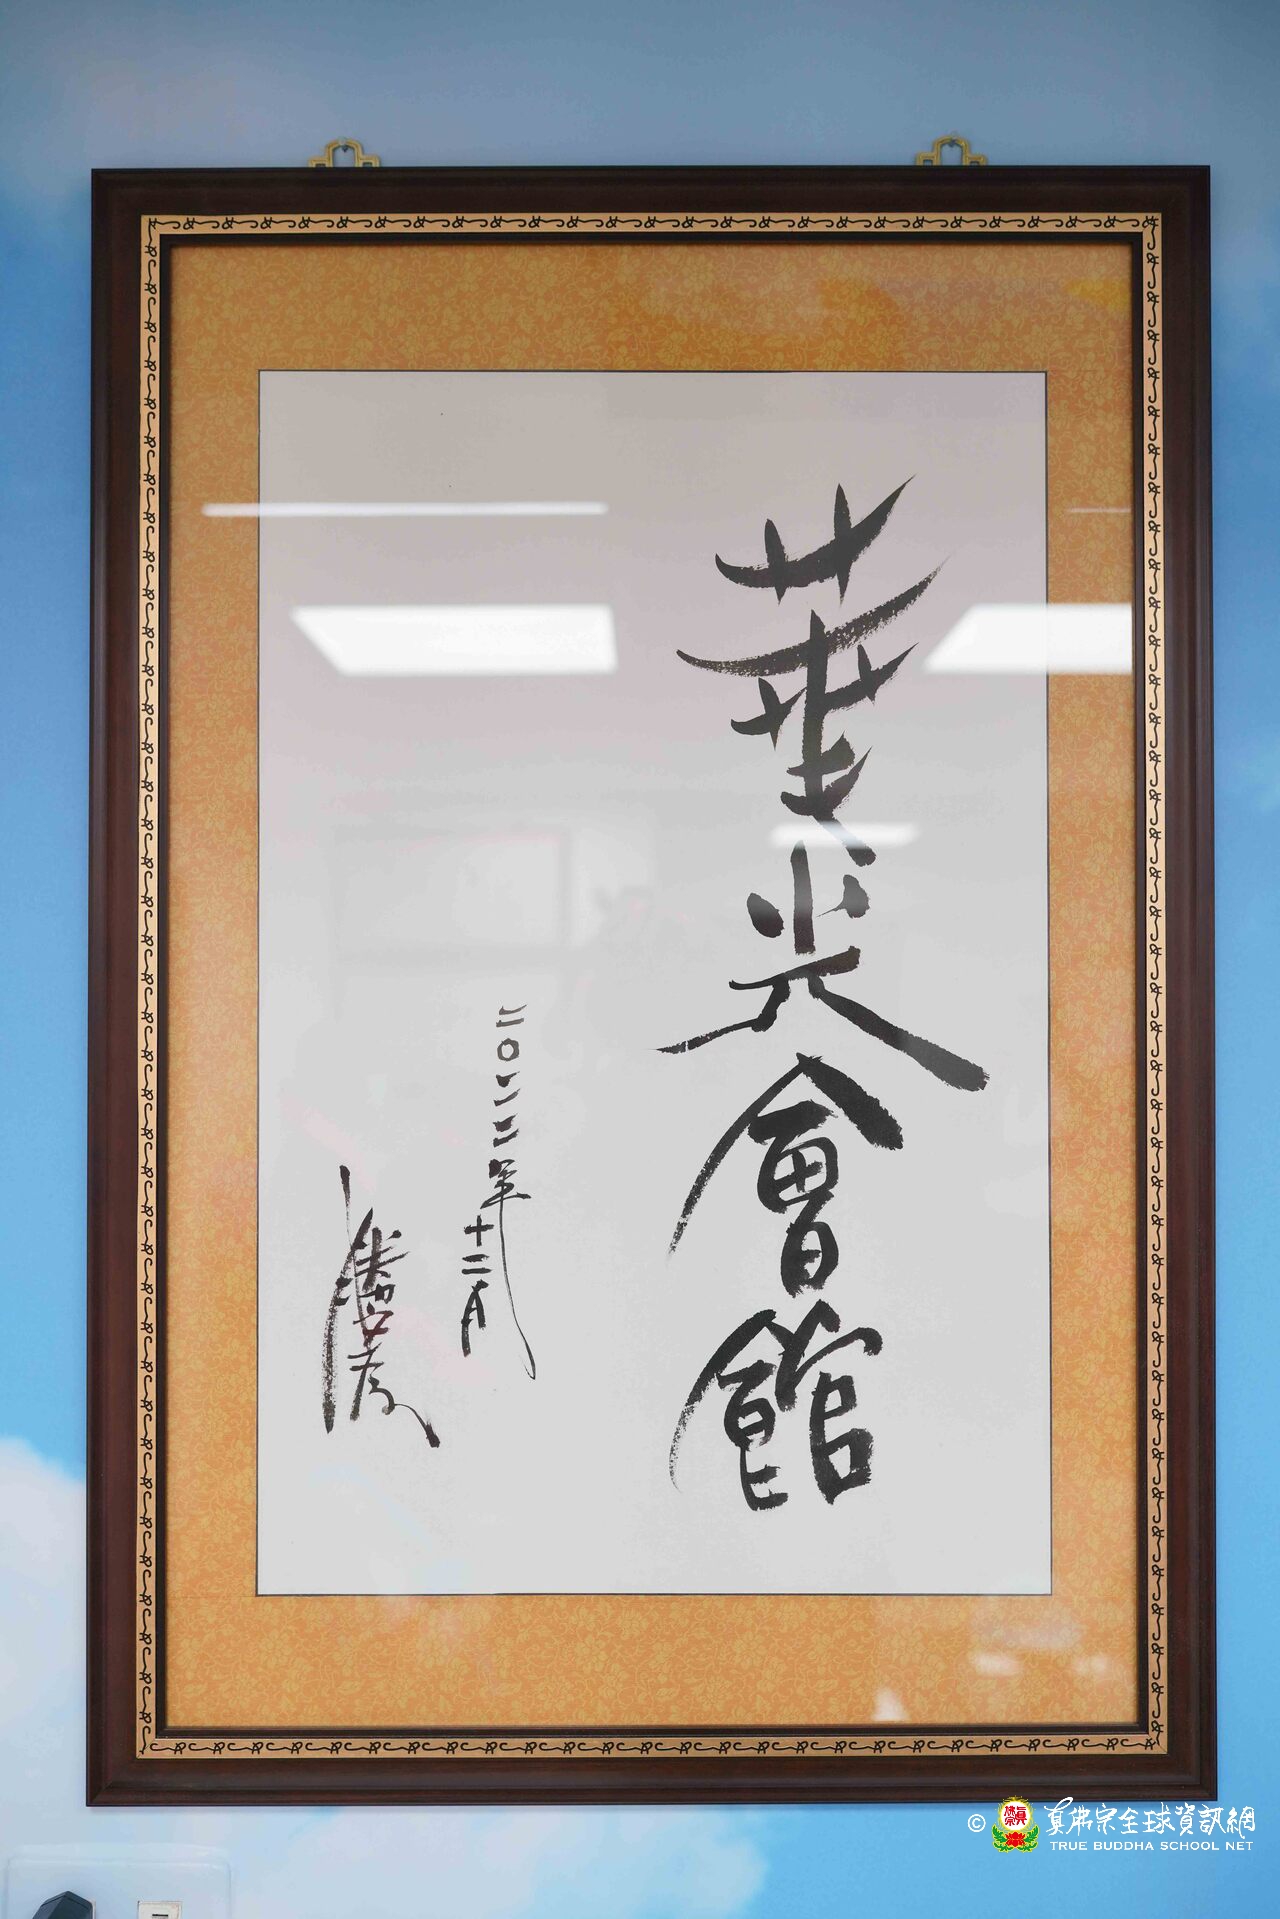 華光會館
二〇二二年
十二月
盧勝彥
© 真佛宗全球資訊網
TRUE BUDDHA SCHOOL NET